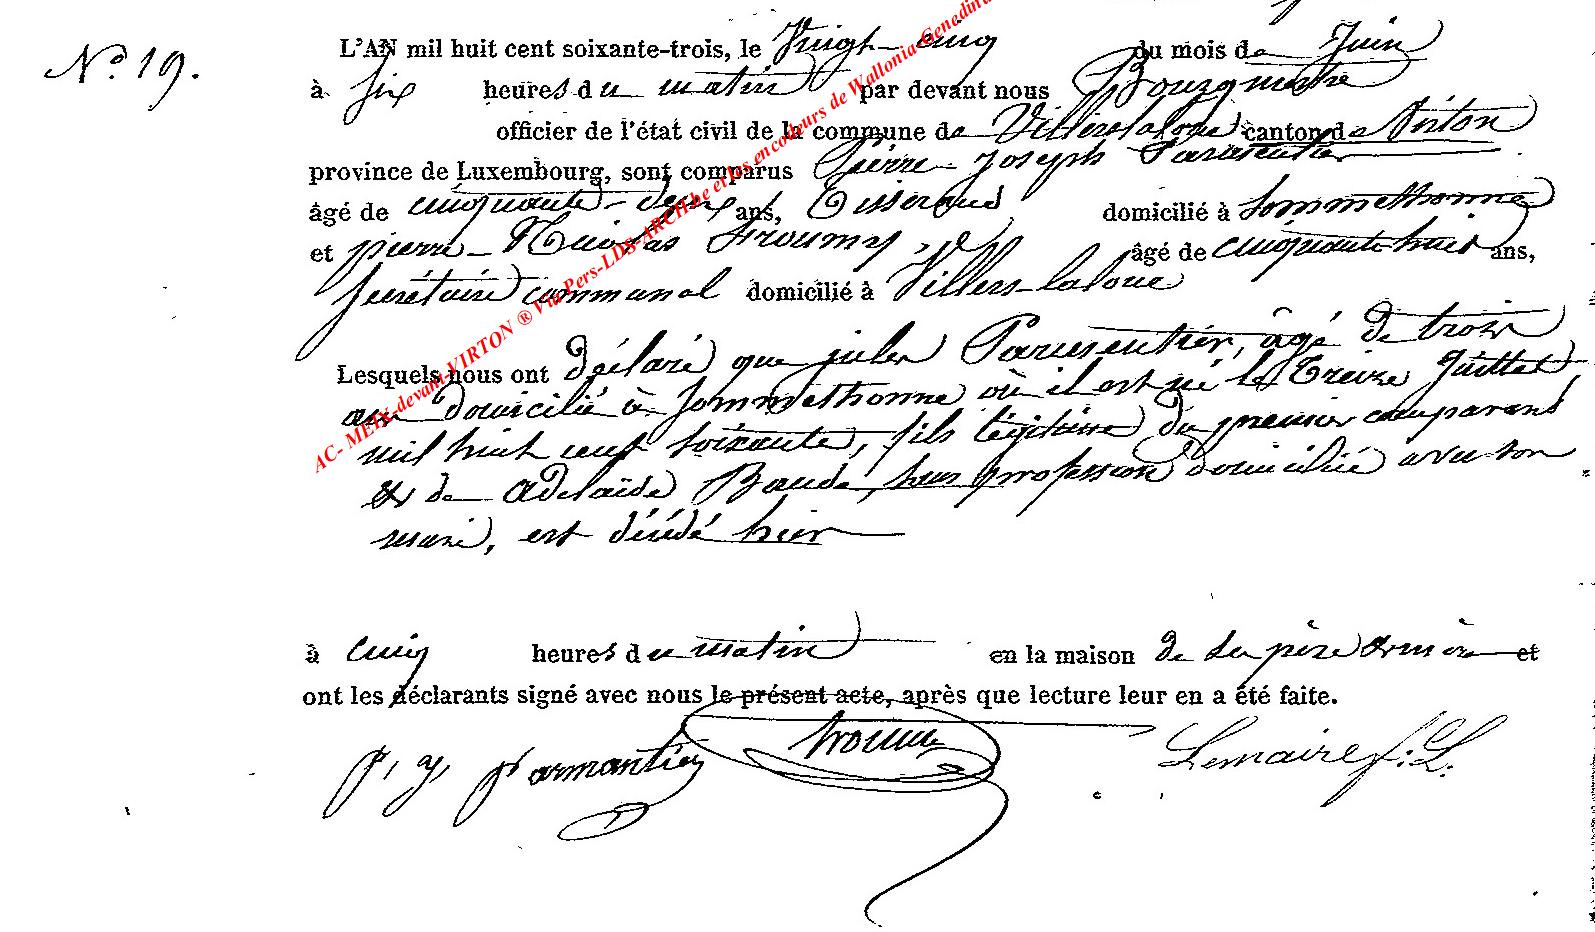 N.º 19.
L'AN mil huit cent soixante-trois, le Vingt-cinq du mois de Juin
à six heures du matin par devant nous Bourgmestre
officier de l'état civil de la commune de Villers-laloue canton de Virton
province de Luxembourg, sont comparus Pierre-Joseph Parmentier
âgé de cinquante-deux ans, Tisserand domicilié à Sommethonne
et pierre-Nicolas Froumy, âgé de cinquante huit ans,
secrétaire communal domicilié à Villers-laloue
Lesquels nous ont déclaré que jules Parmentier, âgé de trois
ans domicilié à Sommethonne où il est né le Treize Juillet
mil huit cent soixante, fils légitime du premier comparant
& de Adelaïde Baude, sans profession domiciliée avec son
mari, est décédé hier
à cinq heures du matin en la maison de ses père & mère et
ont les déclarants signé avec nous le présent acte, après que lecture leur en a été faite.
p, j, parmantier Lemaire f: L:
AC- MEIX-devant-VIRTON ® Via Pers-LDS-ARCH.be et les encodeurs de Wallonia-Genedinu